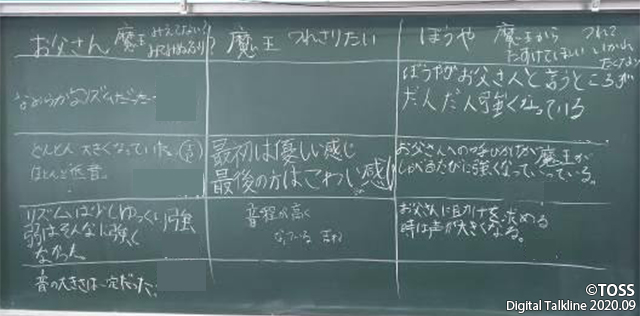 お父さん 魔王 みえてない?
みてみぬふり?
魔王 つれさりたい
ぼうや 魔王から つれて
たすけてほしい いかれ
たくない
なめらかなリズムだった
ぼうやがお父さんと言うところが
だんだん強くなっている
どんどん大きくなっていた
ほとんど低音。
最初は優しい感じ
最後の方はこわい感じ
お父さんへの呼びかけが魔王が
しゃべるたびに強くなっていっている。
リズムは少しゆっくり強
弱はそんなに強く
なかった
音程が高く
なっている
お父さんに助けを求める
時は声が大きくなる。
音の大きさは一定だった
©TOSS
Digital Talkline 2020.09